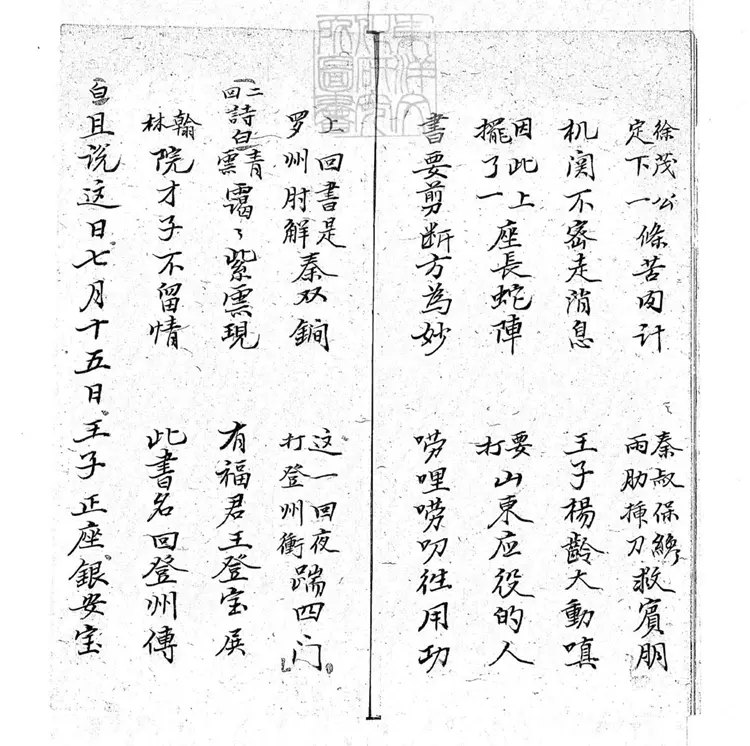 徐茂公定下一條苦肉计 秦叔保 兩肋揷刀救賓朋
机関不密走消息 王子楊齡大動嗔
因此上擺了一座長蛇陣 要打山東应役的人
書要剪断方為妙 唠哩唠叨徃用功
上回書是罗州肘解秦双鐧 这一回夜打登州衝踹四门
二回 詩白 青雲靄々紫雲現 有福君王登宝展
翰林院才子不留情 此書名回登州傳
白 且说这日七月十五日王子正座銀安宝